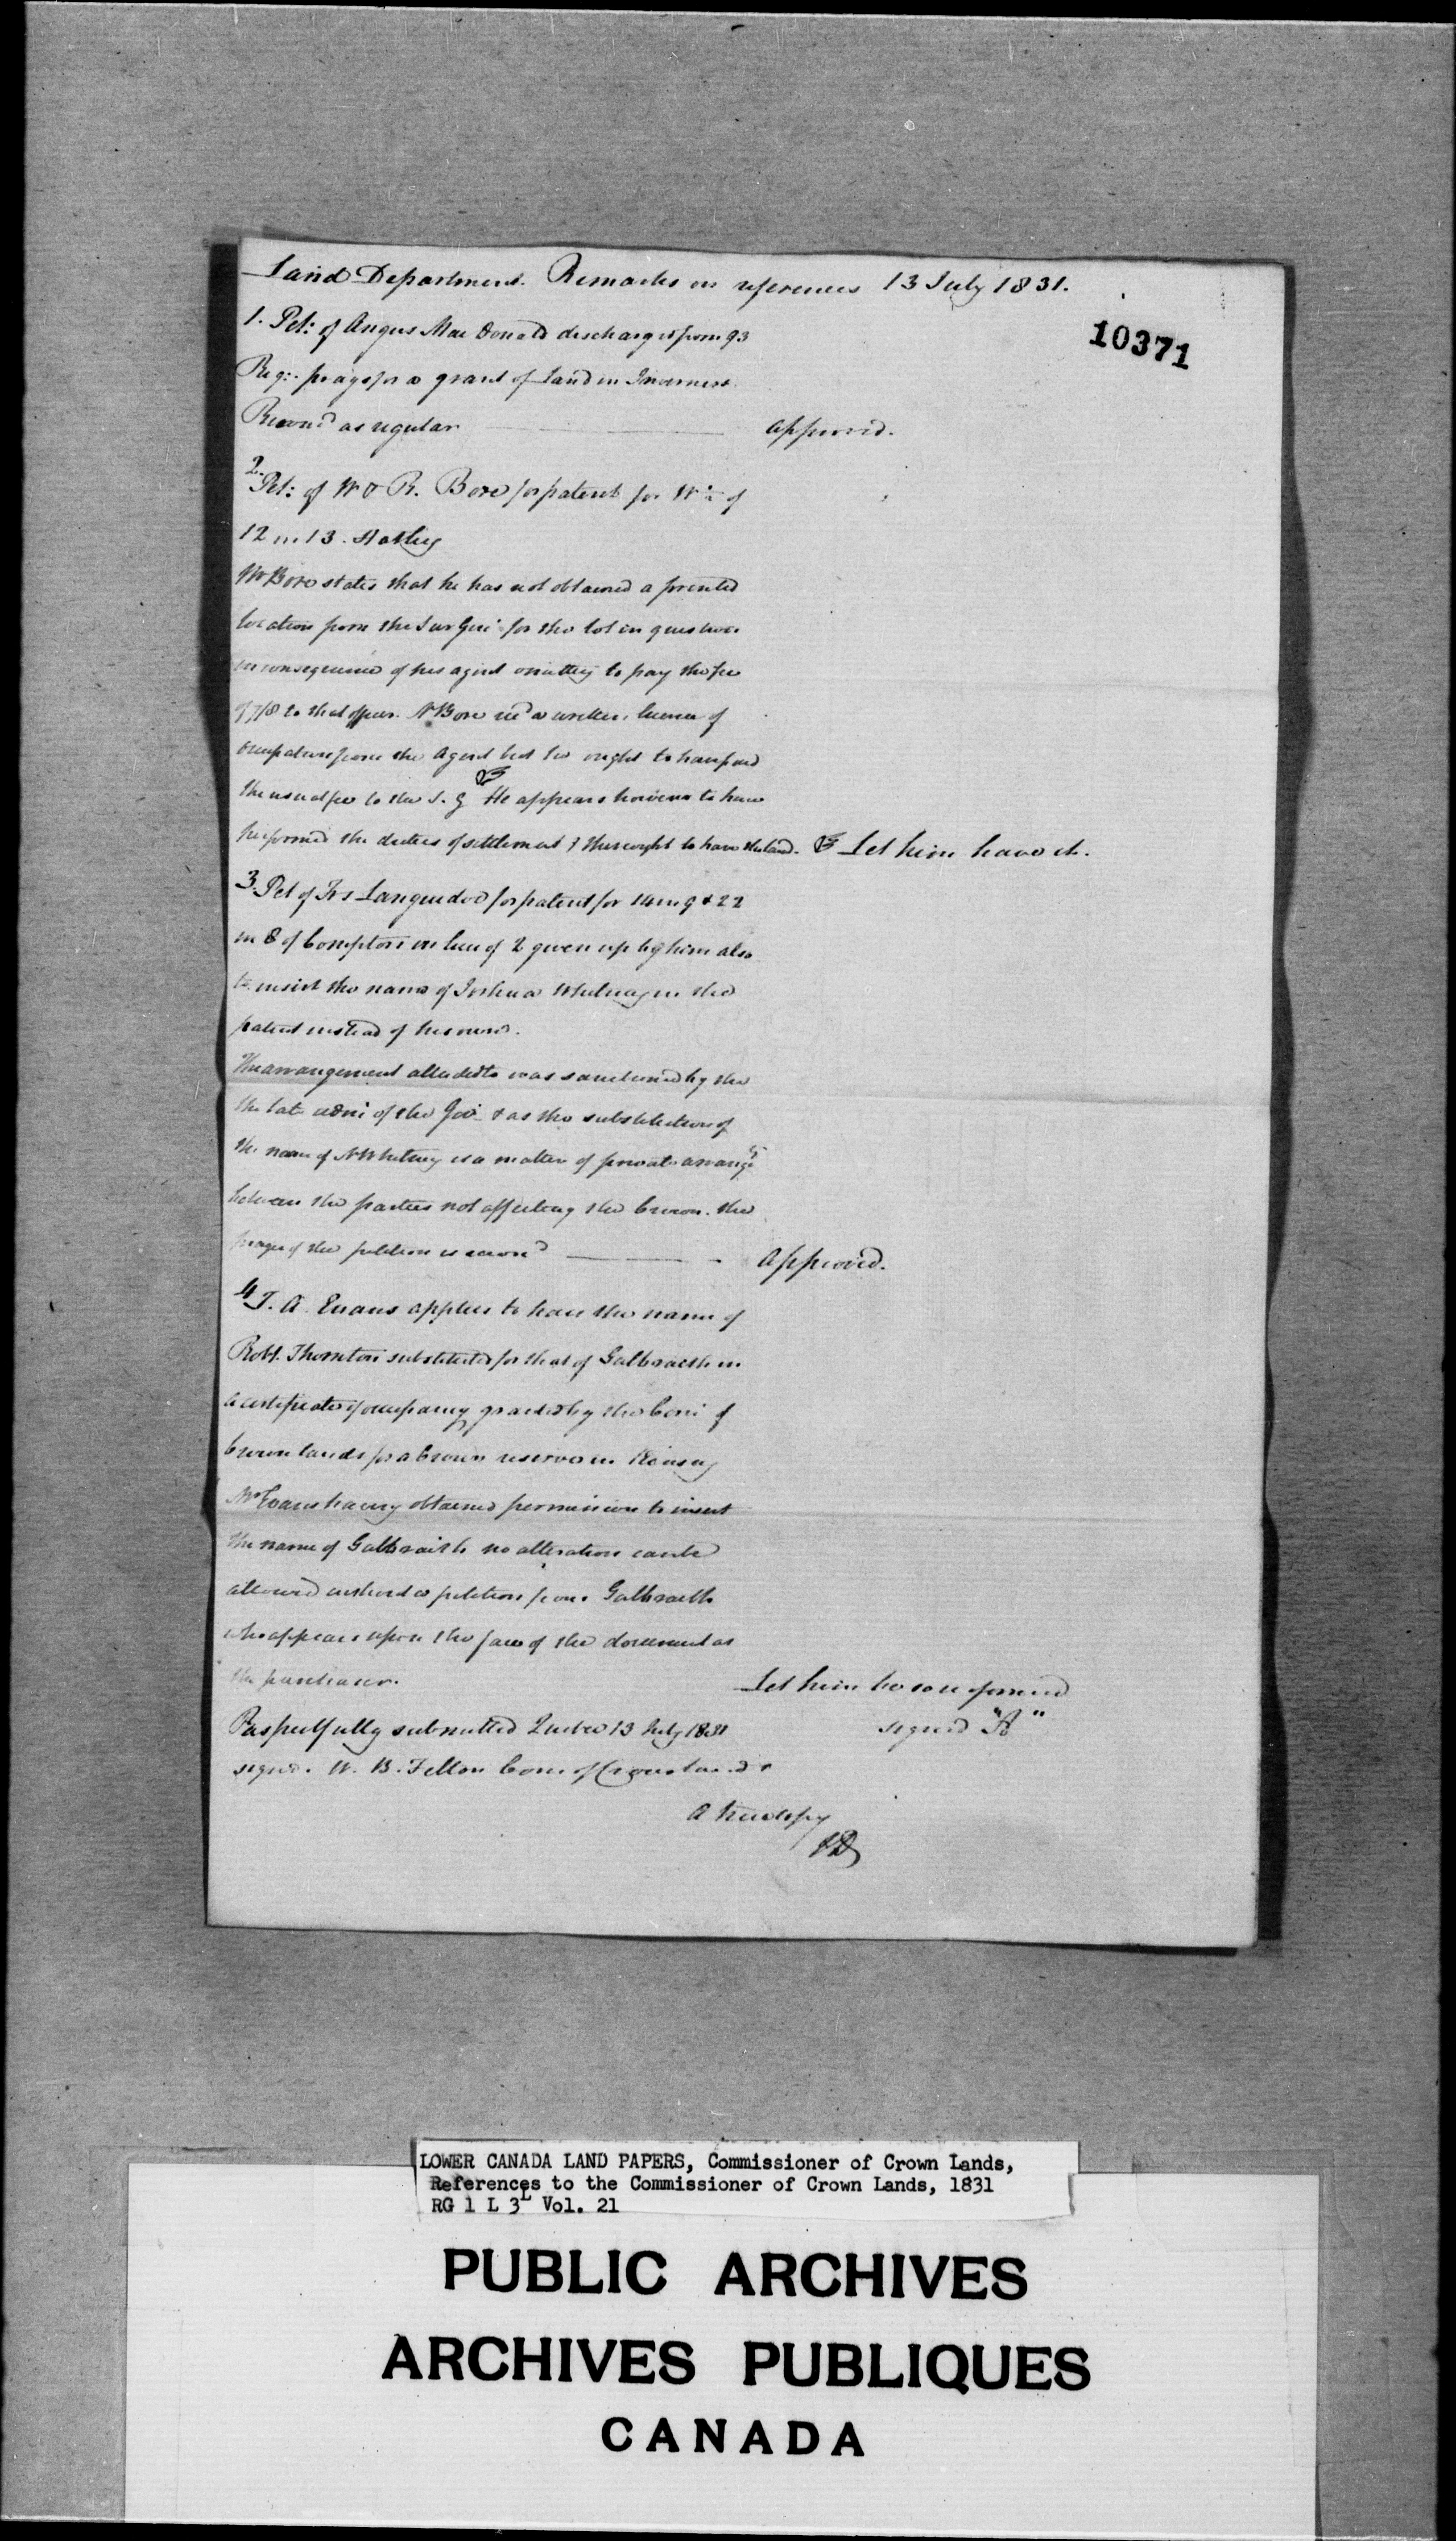 Land Department. Remarks on references 13 July 1831.
10371
1. Pet: of Angus Mac Donald discharged from 93
Reg: prays for a grant of Land in Inverness.
Recomd as regular approved.
2. Pet: of W & R. Bore for patent for W ½ of
12 in 13. Hatley
Mr Bore states that he has not obtained a printed
location from the Sur Genl for the lot in question
in consequence of his agent omitting to pay the fee
of 7/8 to that officer. Mr Bore recd a written licence of
occupation from the Agent but he ought to have paid
the usual fee to the S. G. He appears however to have
performed the duties of settlement & thus ought to have the land. Let him have it.
3. Pet of Frs Languedoc for patent for 14 in 9 & 22
in 8 of Compton in lieu of 2 given up by him also
to insert the name of Joshua Whitney in the
patent instead of his own.
The arrangement alluded to was sanctioned by the
the late admr of the Govt & as the substitution of
the name of Mr Whitney is a matter of private arrangt
between the parties not affecting the Crown. the
prayer of the petition is recomd approved.
4 T. A. Evans applies to have the name of
Robt. Thornton substituted for that of Galbraeth in
a certificate of occupancy granted by the Comr of
Crown lands for a Crown reserve in Kinsey
Mr Evans having obtained permission to insert
the name of Galbraith no alteration can be
allowed without a petition from Galbraeth
who appears upon the face of the document as
the purchaser. Let him be so informed
Respectfully submitted Quebec 13 July 1831 signed "A"
signed. W. B. Felton Comr of Crown lands
A true copy
LOWER CANADA LAND PAPERS, Commissioner of Crown Lands,
References to the Commissioner of Crown Lands, 1831
RG 1 L 3L Vol. 21
PUBLIC ARCHIVES
ARCHIVES PUBLIQUES
CANADA